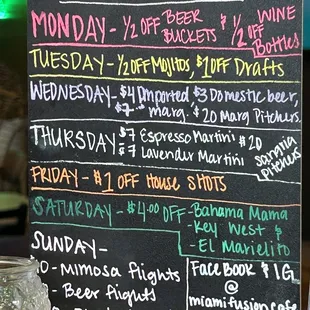 MONDAY - ½ OFF BEER BUCKETS & ½ OFF WINE Bottles
TUESDAY - ½ OFF Mojitos, $1 OFF Drafts
WEDNESDAY - $4 Imported $3 Domestic beer,
$7 - marg. $20 Marg Pitchers.
THURSDAY $7 Espresso Martini $20
$7 Lavender Martini Sangria Pitchers
FRIDAY - $1 OFF House SHOTS
SATURDAY - $4.00 OFF - Bahama Mama
- Key West &
- El Marielito
SUNDAY -
0 - Mimosa flights
- Beer flights
FaceBook & IG
@
miamifusioncafe